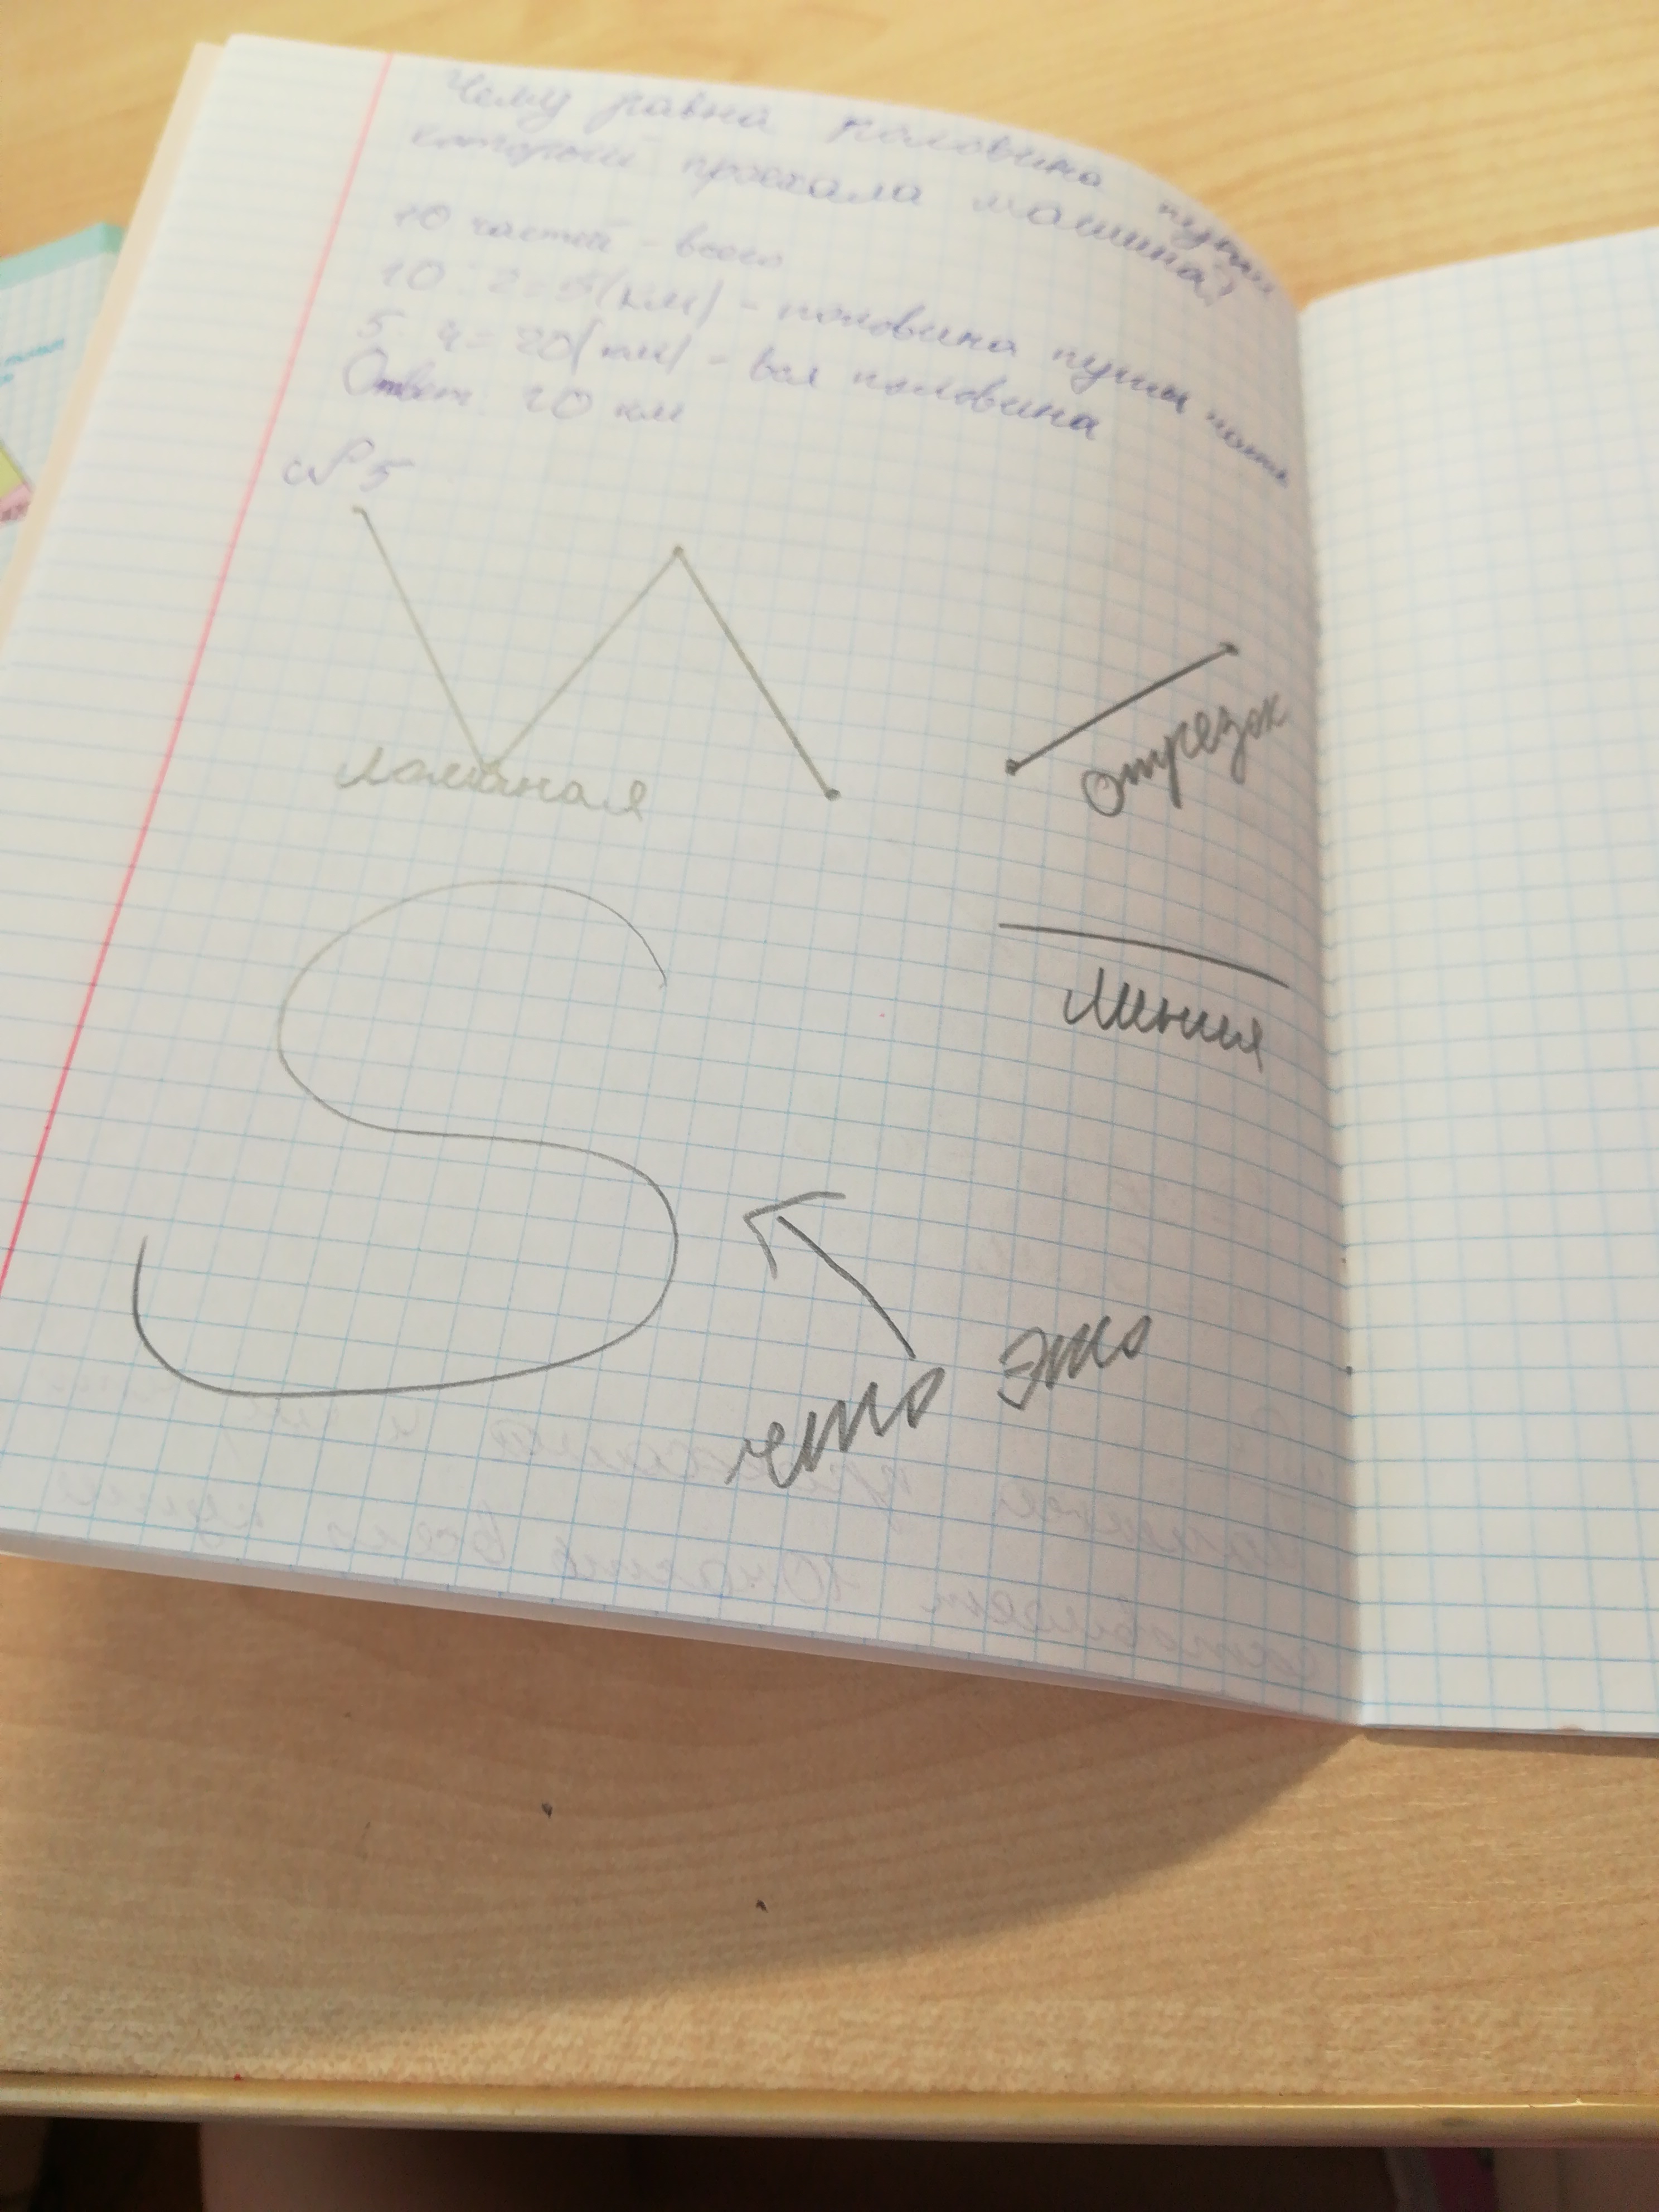 Чему равна половина пути
который проехала машина?
10 частей - всего
10 : 2 = 5 (км) - половина пути
5 · 4 = 20 (км) - вся половина
Ответ: 20 км
№5
ломаная
отрезок
линия
что это